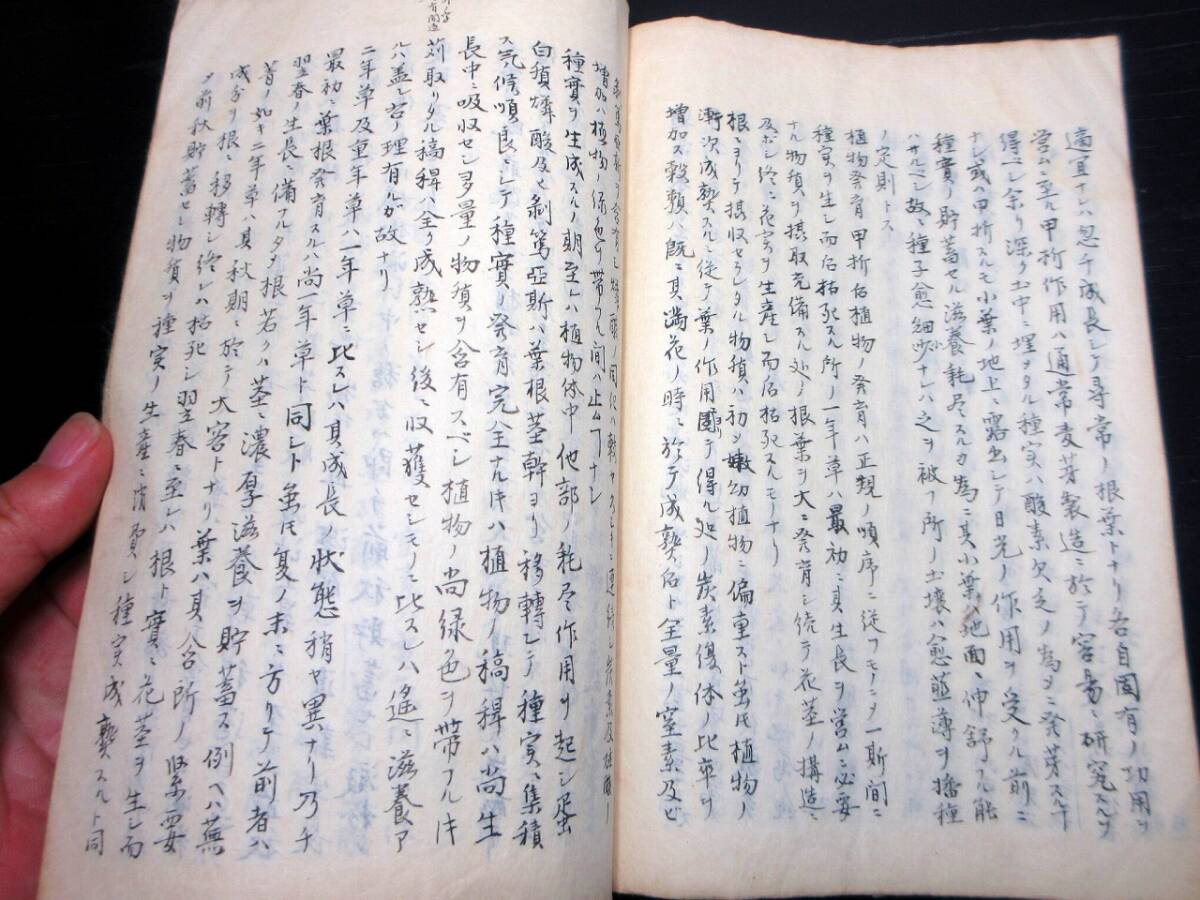 適宜ナレハ忽チ成長シテ尋常ノ根葉トナリ各自固有ノ功用ヲ
営ムニ至ル甲析作用ハ通常麦芽製造ニ於テ容易ニ研究スルヲ
得ベシ余リ深ク土中ニ埋ヲタル種実ハ酸素欠乏ノ為メニ発芽スル
ナシ或ハ甲析スルモ小葉ノ地上ニ露出シテ日光ノ作用ヲ受クル前ニ
種實ノ貯蓄セル滋養耗尽スルカ為ニ其小葉ハ地面ニ伸舒フル能
ハサルベシ故ニ種子愈細少ナレハ之ヲ被フ所ノ土壌ハ愈薄ヲ播種
ノ定則トス
植物発育甲析后植物ノ発育ハ正規ノ順序ニ従フモノニヲ一斯間ニ
種実ヲ生シ而后枯死スル所ノ一年草ハ最初ニ其生長ヲ営ムニ必要
ナル物質ヲ摂取充備スル処ノ根葉ヲ大ニ発育シ続テ花茎ノ搆造ニ
及ホシ終ニ花実ヲ生産シ而后枯死スルモノナリ
根ニヨリテ摂収セラレタル物質ハ初メ嫩幼植物ニ偏重スト虽モ植物ノ
漸次成熟スルニ従テ葉ノ作用ニ因テ得ル処ノ炭素復体ノ比率ヲ
増加ス穀類ハ既ニ其満花ノ時ニ於テ成熟后ト全量ノ窒素及ビ
増加ハ植物ノ緑色ヲ帯フル間ハ止ムヿナシ
種實ヲ生成スルノ期至レハ植物体中他部ノ耗尽作用ヲ起シ蛋
白質燐酸及ヒ剥篤亜斯ハ葉根茎幹ヨリ移轉シテ種実ニ集積
ス気候順良ニシテ種實ノ発育完全ナルキハ植物ノ稿稈ハ尚生
長中ニ吸収セシ多量ノ物質ヲ含有スベシ植物ノ尚緑色ヲ帯フルキ
苅取リタル稿稈ハ全ク成熟セシ後ニ収獲セシモノニ比スレハ遙ニ滋養ア
ルハ蓋シ右ノ理有ルガ故ナリ
二年草及重年草ハ一年草ニ比スレハ其成長ノ状態稍ヤ異ナリ乃チ
最初ニ葉根発育スルハ尚一年草ト同シト虽モ夏ノ末ニ方リテ前者ハ
翌春ノ生長ニ備フルタメ根若クハ茎ニ濃厚滋養ヲ貯蓄ス例ヘハ蕪
菁ノ如キ二年草ハ其秋期ニ於テ大客トナリ葉ハ其含所ノ緊要
成分ヲ根ニ移轉シ終レハ枯死シ翌春ニ至レハ根ト實ニ花茎ヲ生シ而
メ前秋貯蓄セシ物質ヲ種実ノ生産ニ消費シ種実成熟スルト同